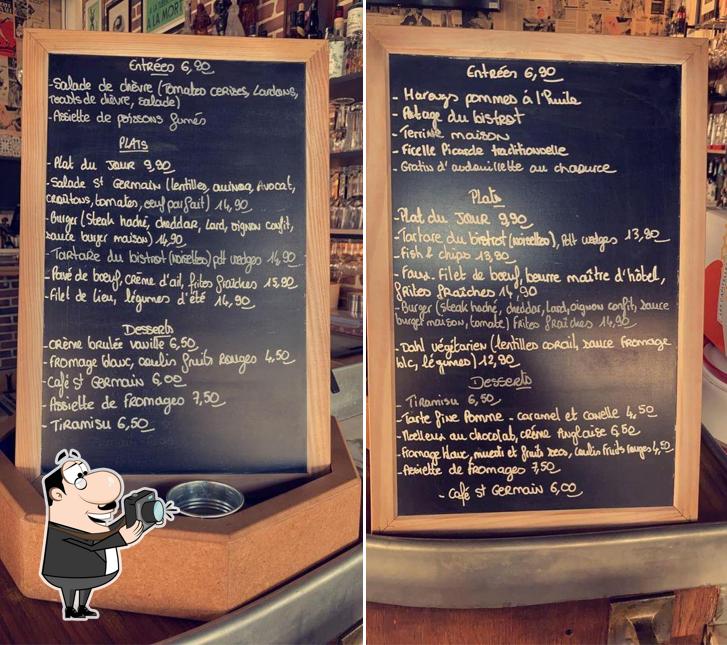 Entrées 6,90
- Salade de chèvre (Tomates cerises, Lardons,
Toasts de chèvre, salade)
- Assiette de poissons fumés
PLATS
- Plat du JOUR 9,90
- Salade St Germain (lentilles, quinoa, Avocat,
croûtons, tomates, oeuf parfait) 14,90
- Burger (Steak haché, cheddar, Lard, oignon confit,
sauce burger maison) 14,90
- Tartare du bistrot (noisettes) pdt wedges 14,90
- Pavé de boeuf, crème d'ail, frites fraîches 15,90
- Filet de Lieu, légumes d'été 14,90
Desserts
- crème brulée vanille 6,50
- fromage blanc, coulis fruits rouges 4,50
- Café St Germain 6,00
- Assiette de Fromages 7,50
- Tiramisu 6,50
Entrées 6,90
- Harengs pommes à l'huile
- Potage du bistrot
- Terrine maison
- Ficelle Picarde traditionnelle
- Gratin d'andouillette au chaource
Plats
- Plat du JOUR 9,90
- Tartare du bistrot (noisettes), pdt wedges 13,90
- Fish & chips 13,90
- Faux-Filet de boeuf, beurre maître d'hôtel,
frites fraîches 14,90
- Burger (steak haché, cheddar, Lard, oignon confit, sauce
burger maison, tomate) Frites fraîches 14,90
- Dahl végétarien (lentilles corail, sauce fromage
blc, légumes) 12,90
Desserts
- Tiramisu 6,50
- Tarte fine Pomme - caramel et canelle 4,50
- Moelleux au chocolat, crème Anglaise 6,50
- Fromage blanc, muesli et fruits secs, coulis fruits rouges 4,50
- Assiette de fromages 7,50
- Café St GERMAIN 6,00